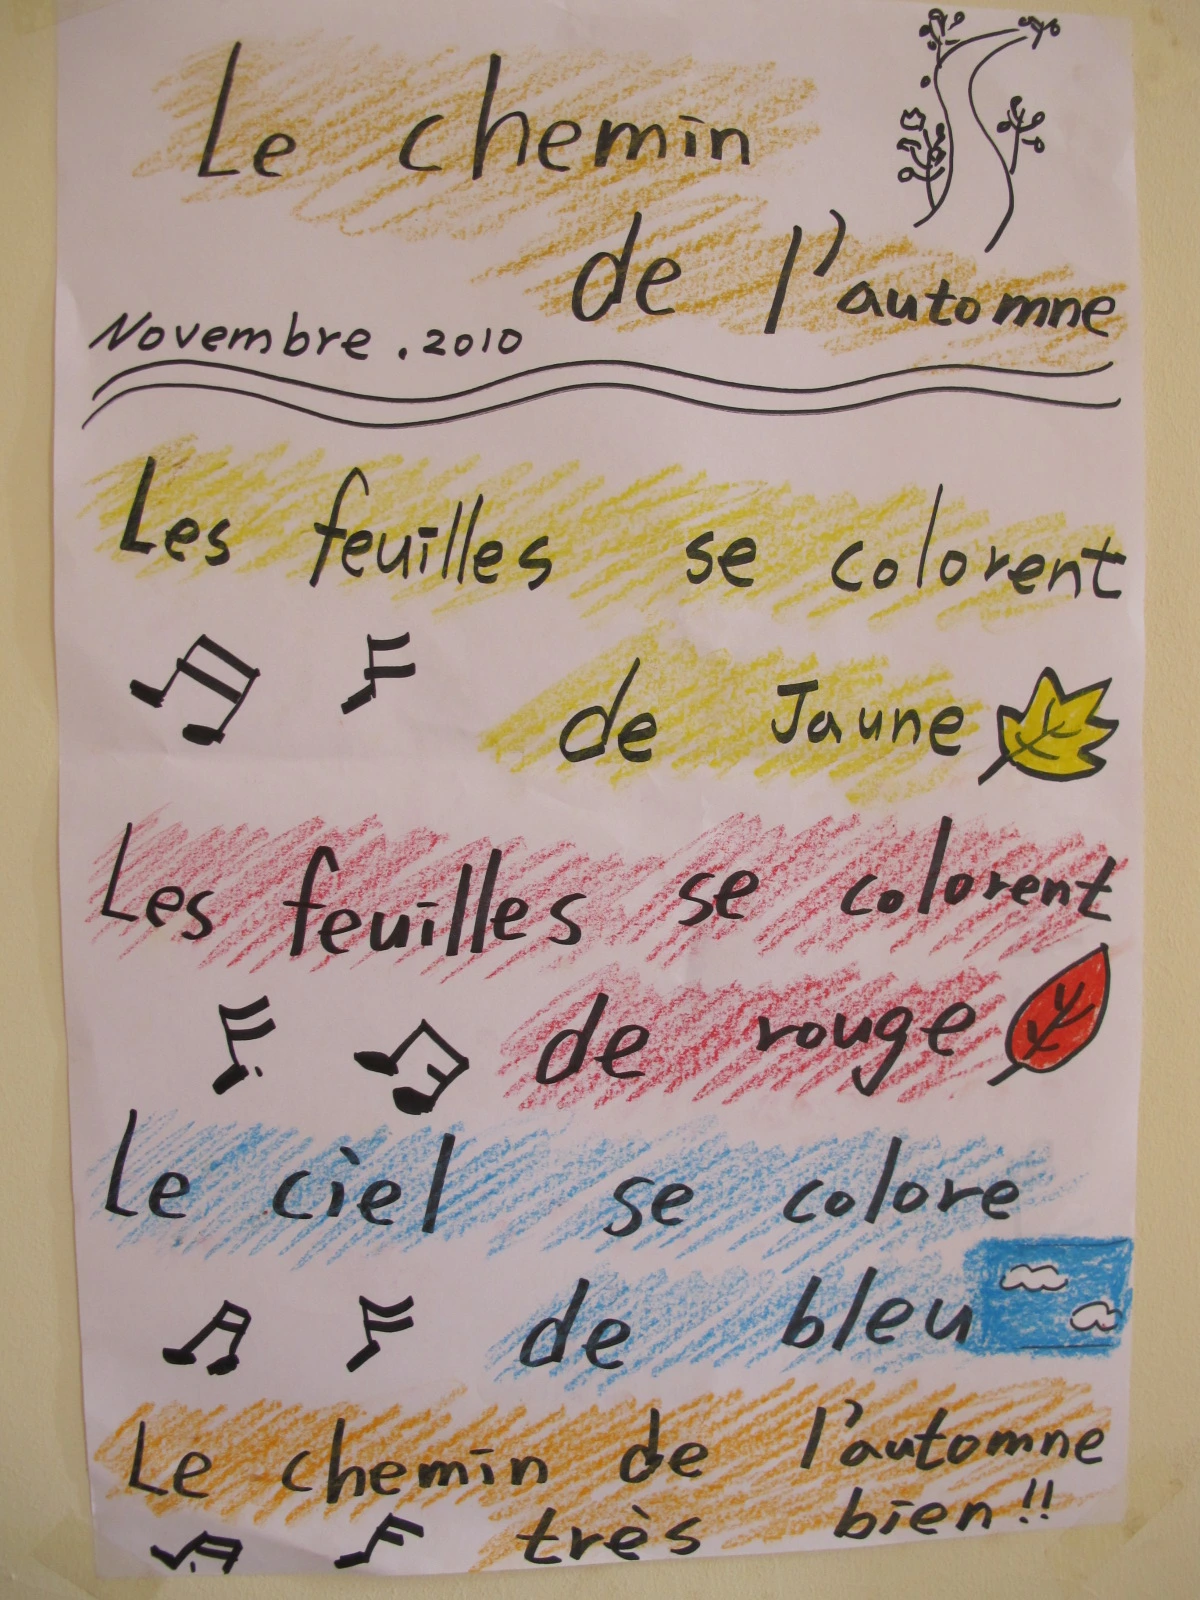 Le chemin
de l'automne
Novembre . 2010
Les feuilles se colorent
de Jaune
Les feuilles se colorent
de rouge
Le ciel se colore
de bleu
Le chemin de l'automne
très bien!!